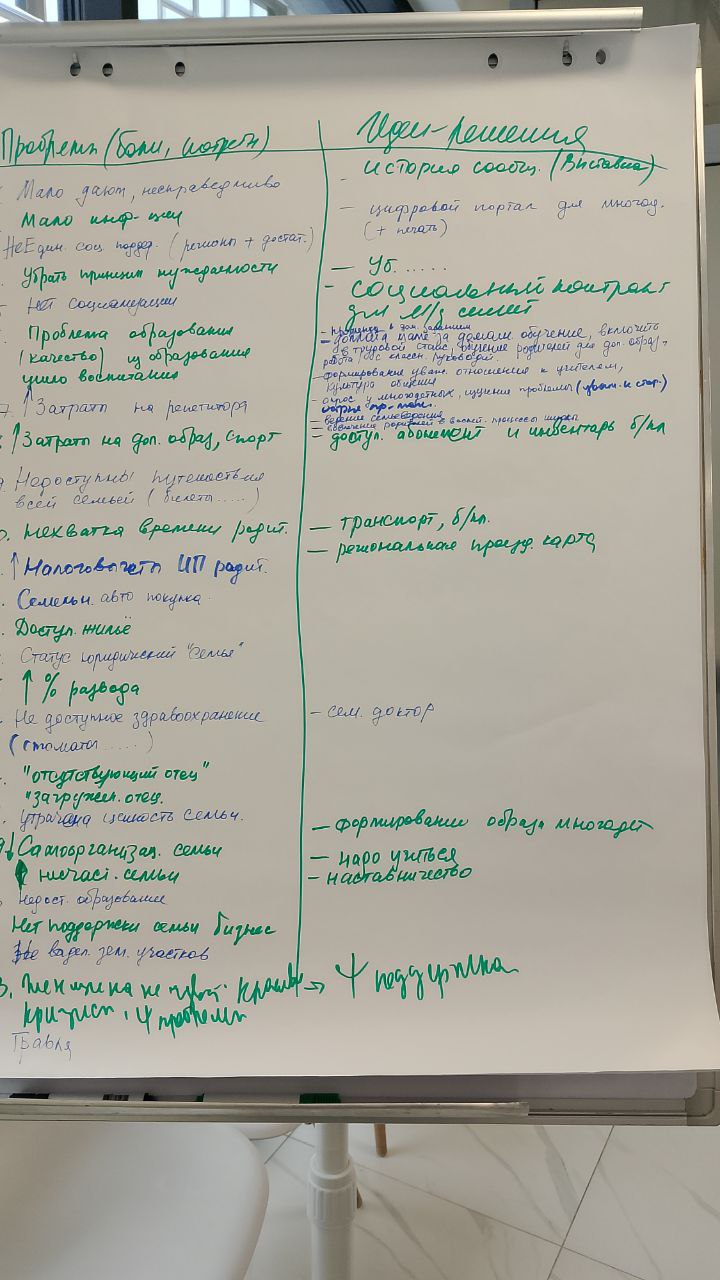 Проблемы (боли, потребн)
Мало дают, несправедливо
Мало инф-ции
НеЕдин. соц. поддер. (регионы + достат.)
Убрать принцип нуждаемости
Нет социализации
Проблема образования
(качество) из образования
ушло воспитание
7. ↑ Затраты на репетитора
↑ Затраты на доп. образ, спорт
Недоступны путешествия
всей семьей (билеты.....)
Нехватка времени родит.
↑ Налог. вычета ИП родит.
Семейн. авто покупка
Доступ. жильё
Статус юридический "семья"
↑ % развода
Не доступное здравоохранение
(стоматы.....)
"отсутствующий отец"
"загружен. отец.
Утрачена ценность семьи.
↓ Самоорганизац. семьи
несчаст. семьи
Недост. образование
Нет поддержки семьи бизнес
Не выдел. зем. участков
3. Женщина не чувст. красивой → Ψ поддержка
кризисы, Ψ проблемы
Травля
Идеи-решения
- история сообщ. (Выставка)
- цифровой портал для многод.
(+ печать)
- Уб.....
- социальный контракт
для м/д семей
- доплата маме за домаш. обучение, включить
в трудовой стаж, обучение родителей для доп. образ,
работа с классн. руководит.
- формирование уваж. отношения к учителям,
культура общения
- опрос у многодетных, изучение проблемы
- ведение семьеведения
- вовлечение родителей в воспит. процессы школы
- доступ. абонемент и инвентарь б/пл
- транспорт, б/пл.
- региональная проезд. карта
- сем. доктор
- формирование образа многодет
- надо учиться
- наставничество